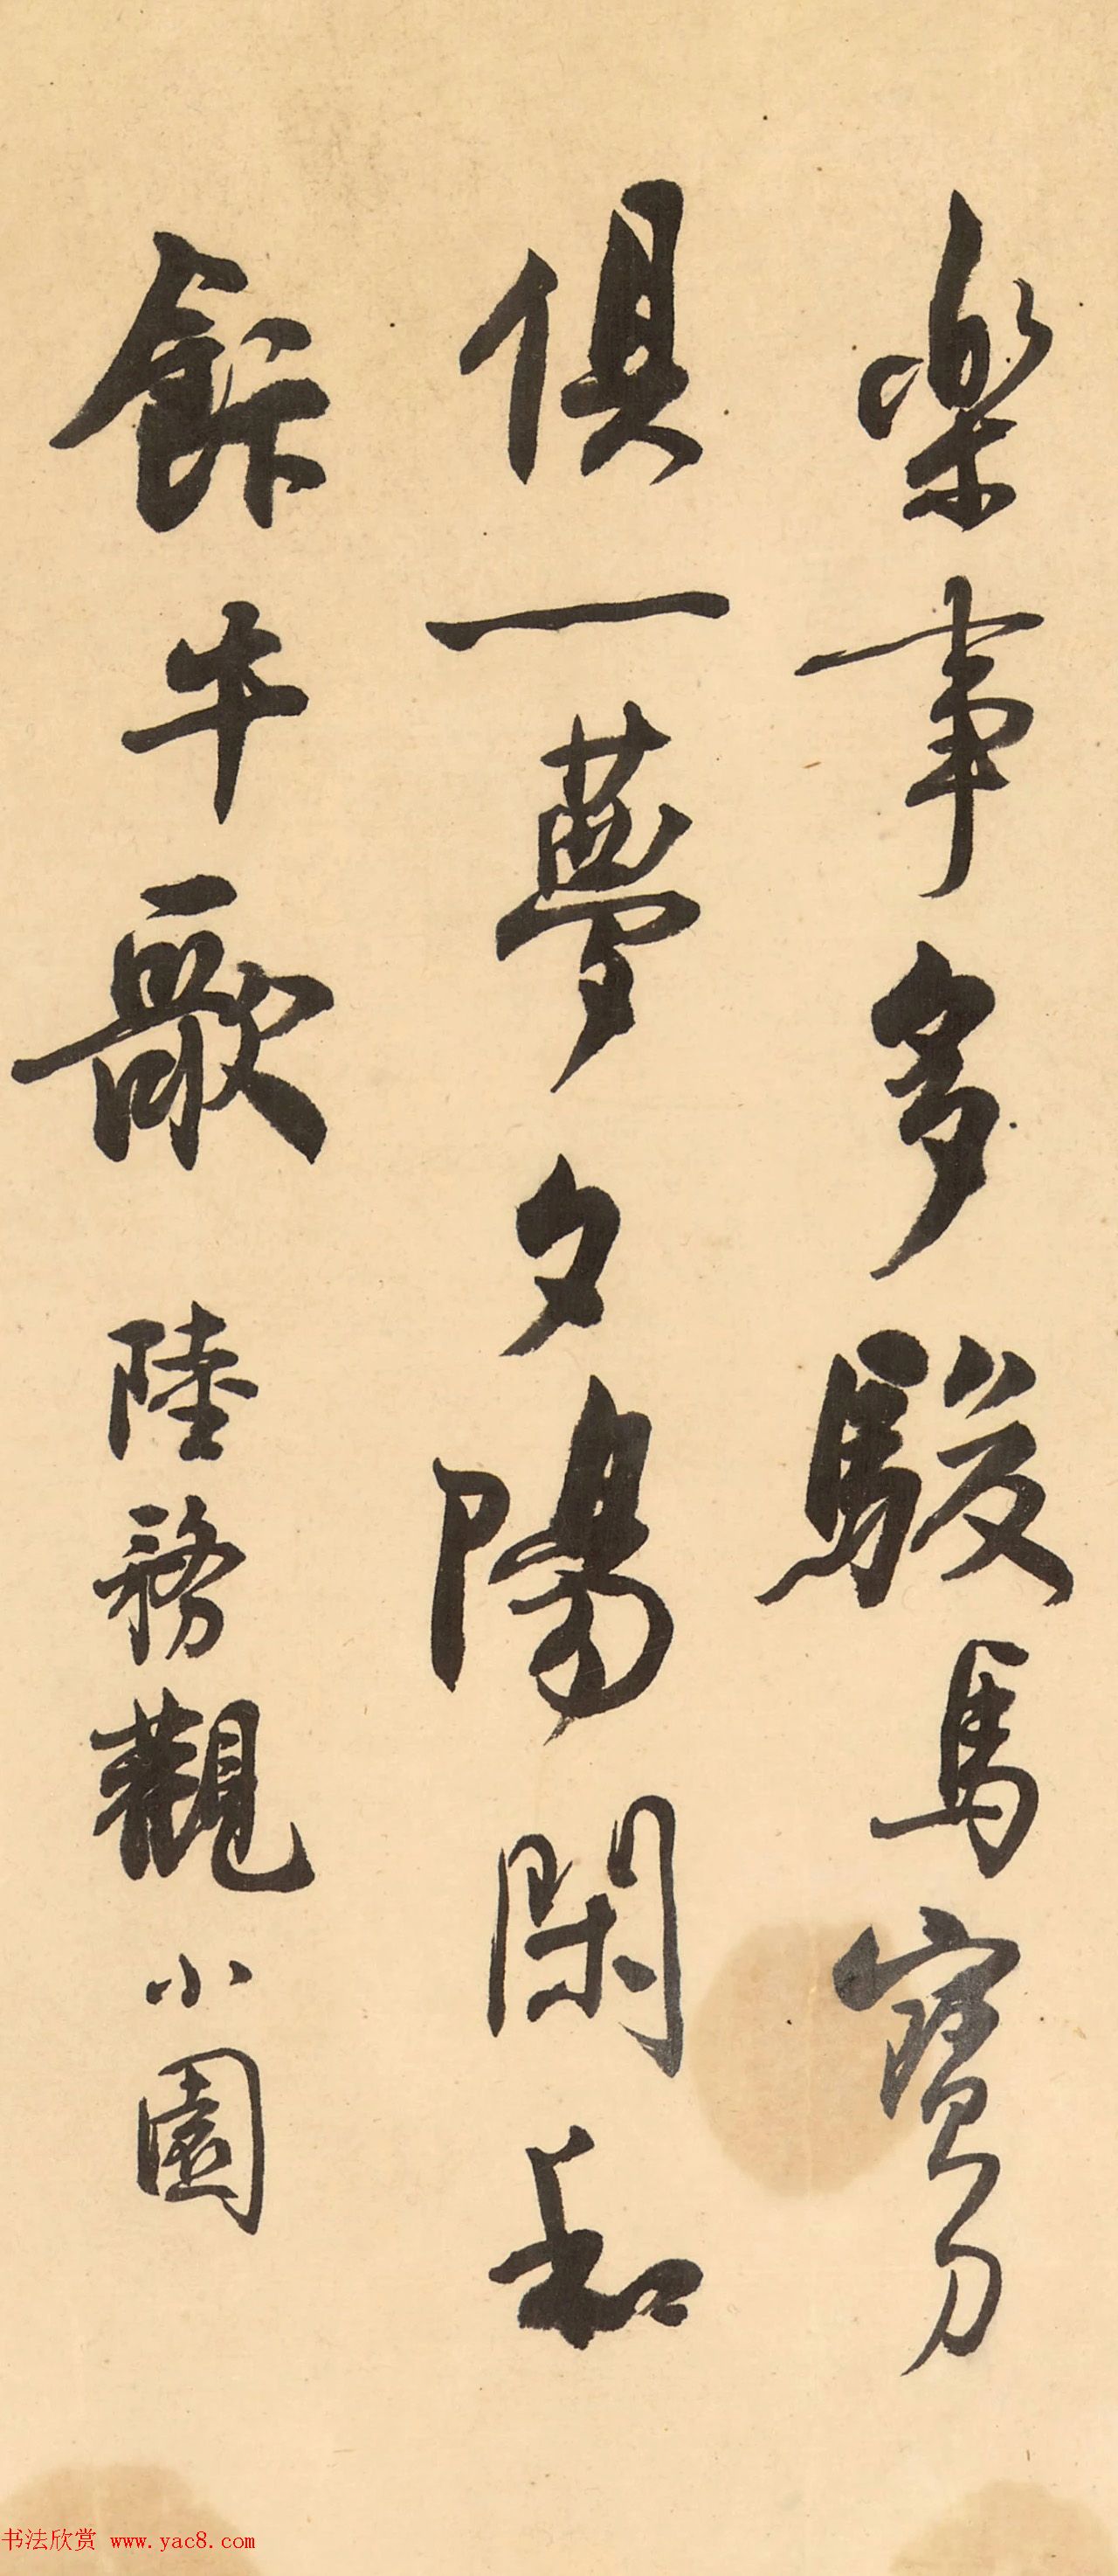 樂事多駿馬寶刀
俱一夢夕陽閑和
飰牛歌 陸務觀小園
书法欣赏 www.yac8.com